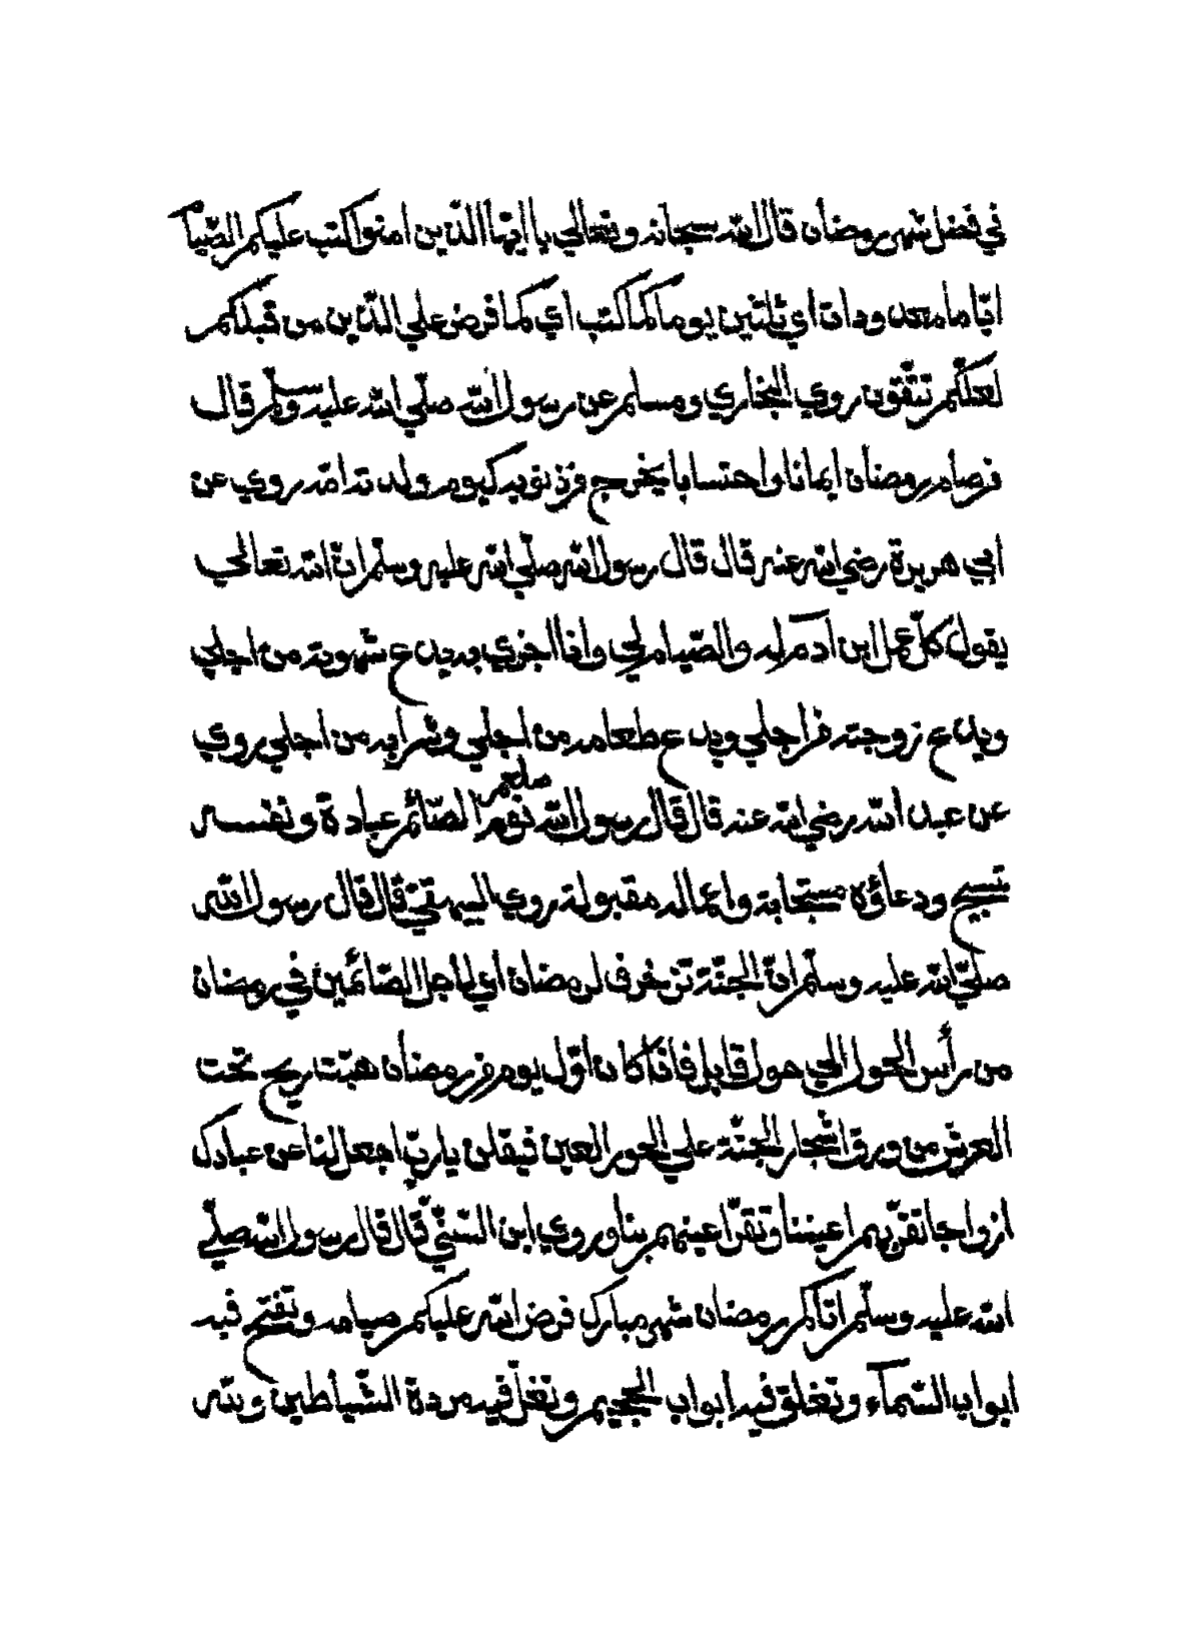 في فضل شهر رمضان قال الله سبحانه وتعالي يا ايّها الّذين امنوا كتب عليكم الصّيا
ايّاما معدودات اي ثلثين يوما كما كتب اي كما فرض علي الّذين من قبلكم
لعلّكم تتّقون روي البخاري ومسلم عن رسول الله صلّي الله عليه وسلّم قال
فرصام رمضان ايمانا واحتسابا يخرج فرذنوبه كيوم ولدته امّه روي عن
ابي هريرة رضي الله عنه قال قال رسول الله صلّي الله عليه وسلّم انّ الله تعالي
يقول كلّ عمل ابن ادم له والصّيام لي وانا اجزي به يدع شهوته من اجلي
ويدع زوجته فراجلي ويدع طعامه من اجلي وشرابه من اجلي روي
عن عبد الله رضي الله عنه قال قال رسول الله صلعم نوم الصّائم عبادة ونفسه
تسبيح ودعاؤه مستجابة واعماله مقبولة روي البيهقيّ قال قال رسول الله
صلّي الله عليه وسلّم انّ الجنّة تزخرف لرمضان اي لاجل الصّائمين في رمضان
من رأس الحول الي حول قابل فاذا كان اوّل يوم فررمضان هبّت ريح تحت
العرش من ورق اشجار الجنّة علي الحور العين فيقلن يا ربّ اجعل لنا عن عبادك
ازواجا تقرّ بهم اعيننا وتقرّ اعينهم بنا وروي ابن السّنيّ قال قال رسول الله صلّي
الله عليه وسلّم اتاكم رمضان شهر مبارك فرض الله عليكم صيامه وتفتح فيه
ابواب السّمآء وتغلق فيه ابواب الجحيم وتغلّ فيه مردة الشّياطين ولله